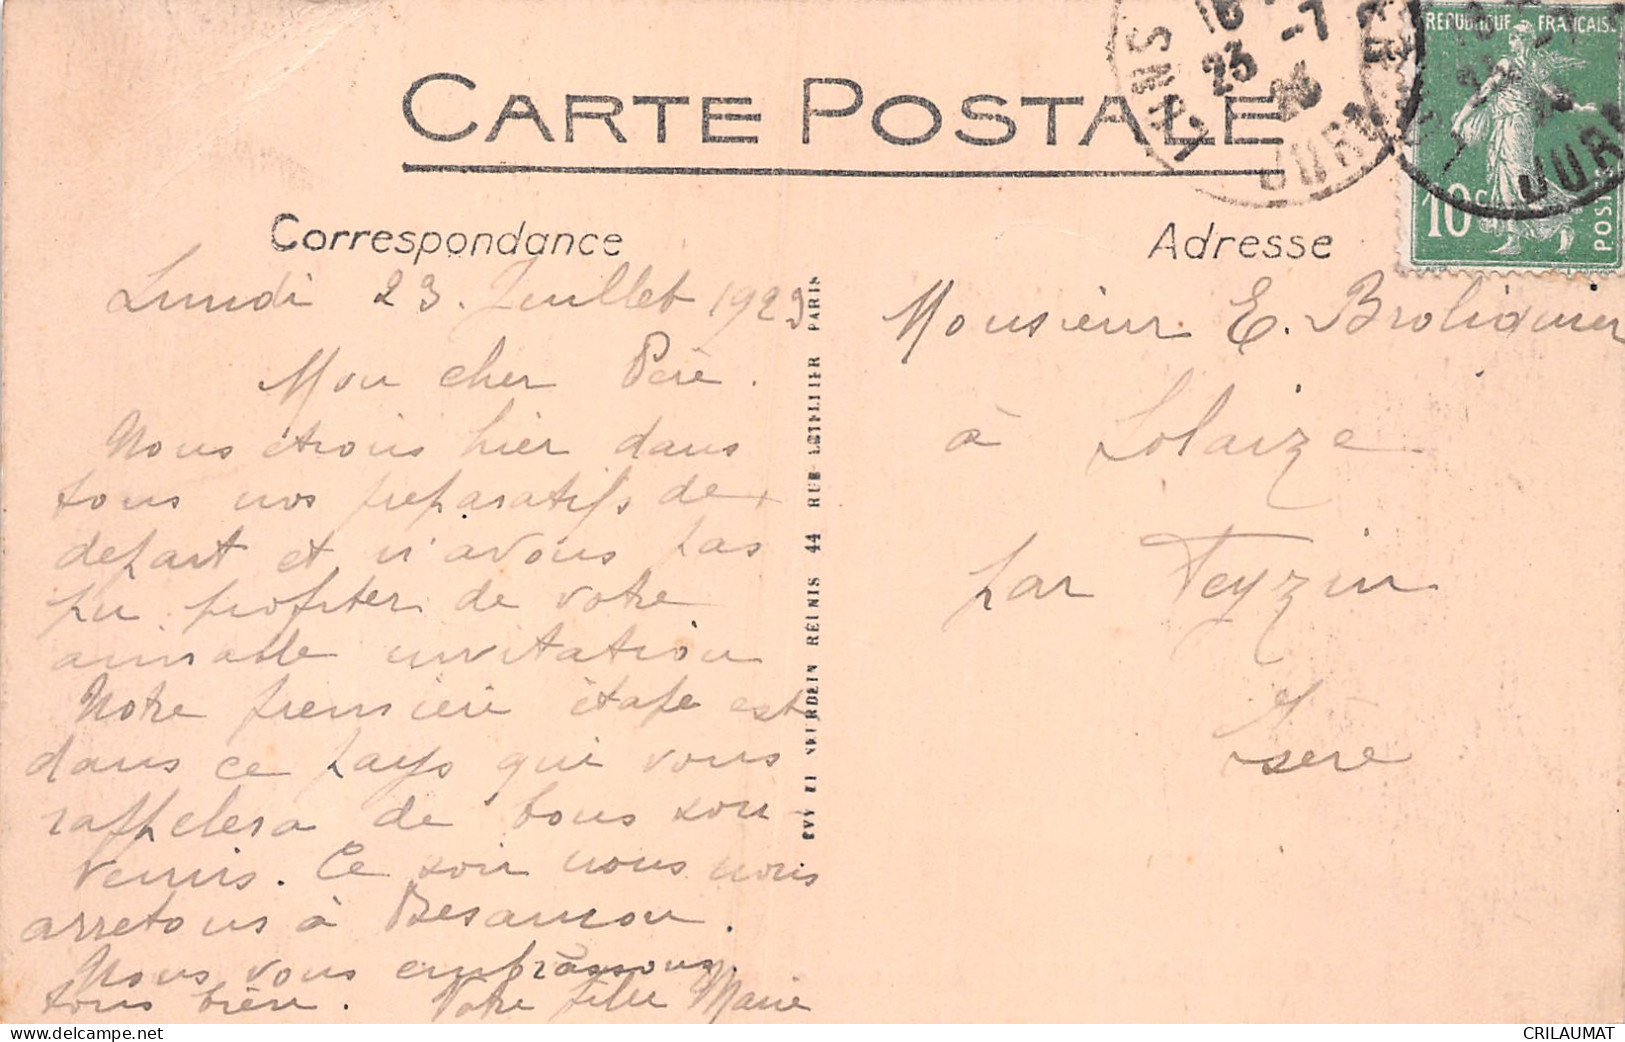 CARTE POSTALE
Correspondance
Lundi 23. Juillet 1923
Mon cher Père.
Nous étions hier dans
tous nos préparatifs de
depart et n'avons pas
pu profiter de votre
aimable invitation
Notre première étape est
dans ce pays qui vous
rappelera de bons sou-
venirs. Ce soir nous nous
arretons à Besançon.
Nous vous embrassons
tous bien. Votre fille Marie
RUE LETELLIER PARIS
44
NEURDEIN REUNIS
Adresse
Monsieur E. Broliquier
à Solaize
par Feyzin
Isere
23 -7
JURA
REPUBLIQUE FRANÇAISE
10c
POSTES
CRILAUMAT